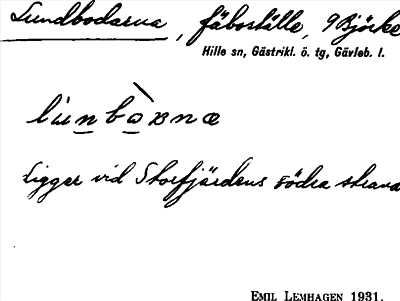 Lundbodarna, fäboställe, 9 Björke
Hille sn, Gästrikl. ö. tg, Gävleb. l.
Ligger vid Storfjärdens södra strand
EMIL LEMHAGEN 1931.